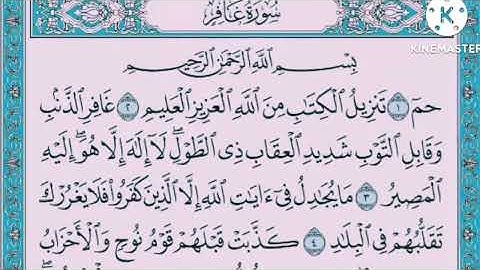 سُورَةُ غَافِرٍ
KINEMASTER
بِسْمِ اللَّهِ الرَّحْمَٰنِ الرَّحِيمِ
حمٓ ١ تَنزِيلُ الْكِتَابِ مِنَ اللَّهِ الْعَزِيزِ الْعَلِيمِ ٢ غَافِرِ الذَّنۢبِ
وَقَابِلِ التَّوْبِ شَدِيدِ الْعِقَابِ ذِى الطَّوْلِ ۖ لَآ إِلَٰهَ إِلَّا هُوَ ۖ إِلَيْهِ
الْمَصِيرُ ٣ مَا يُجَٰدِلُ فِىٓ ءَايَٰتِ اللَّهِ إِلَّا الَّذِينَ كَفَرُوا۟ فَلَا يَغْرُرْكَ
تَقَلُّبُهُمْ فِى الْبِلَٰدِ ٤ كَذَّبَتْ قَبْلَهُمْ قَوْمُ نُوحٍ وَالْأَحْزَابُ